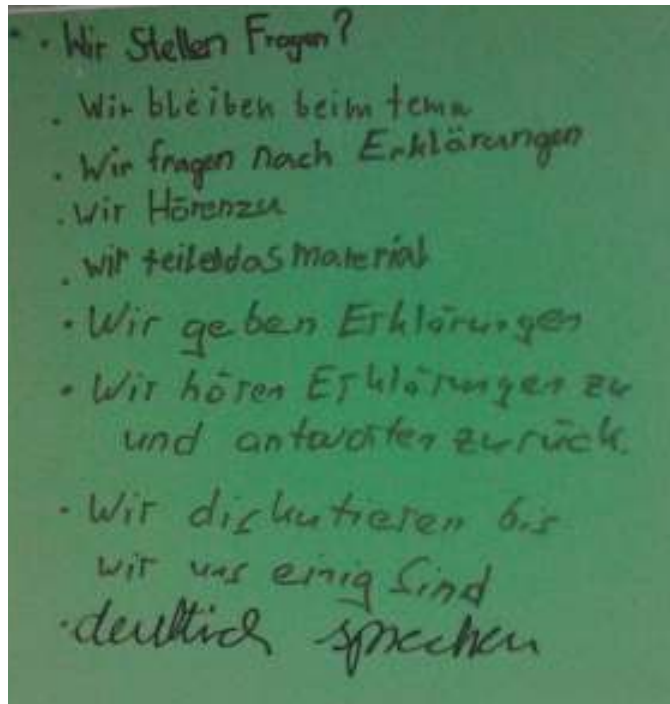 · Wir Stellen Fragen?
· Wir bleiben beim tema
· Wir fragen nach Erklärungen
· Wir Hörenzu
· wir teilen das material
· Wir geben Erklärungen
· Wir hören Erklärungen zu
und antworten zurück.
· Wir diskutieren bis
wir uns einig sind
· deutlich sprechen